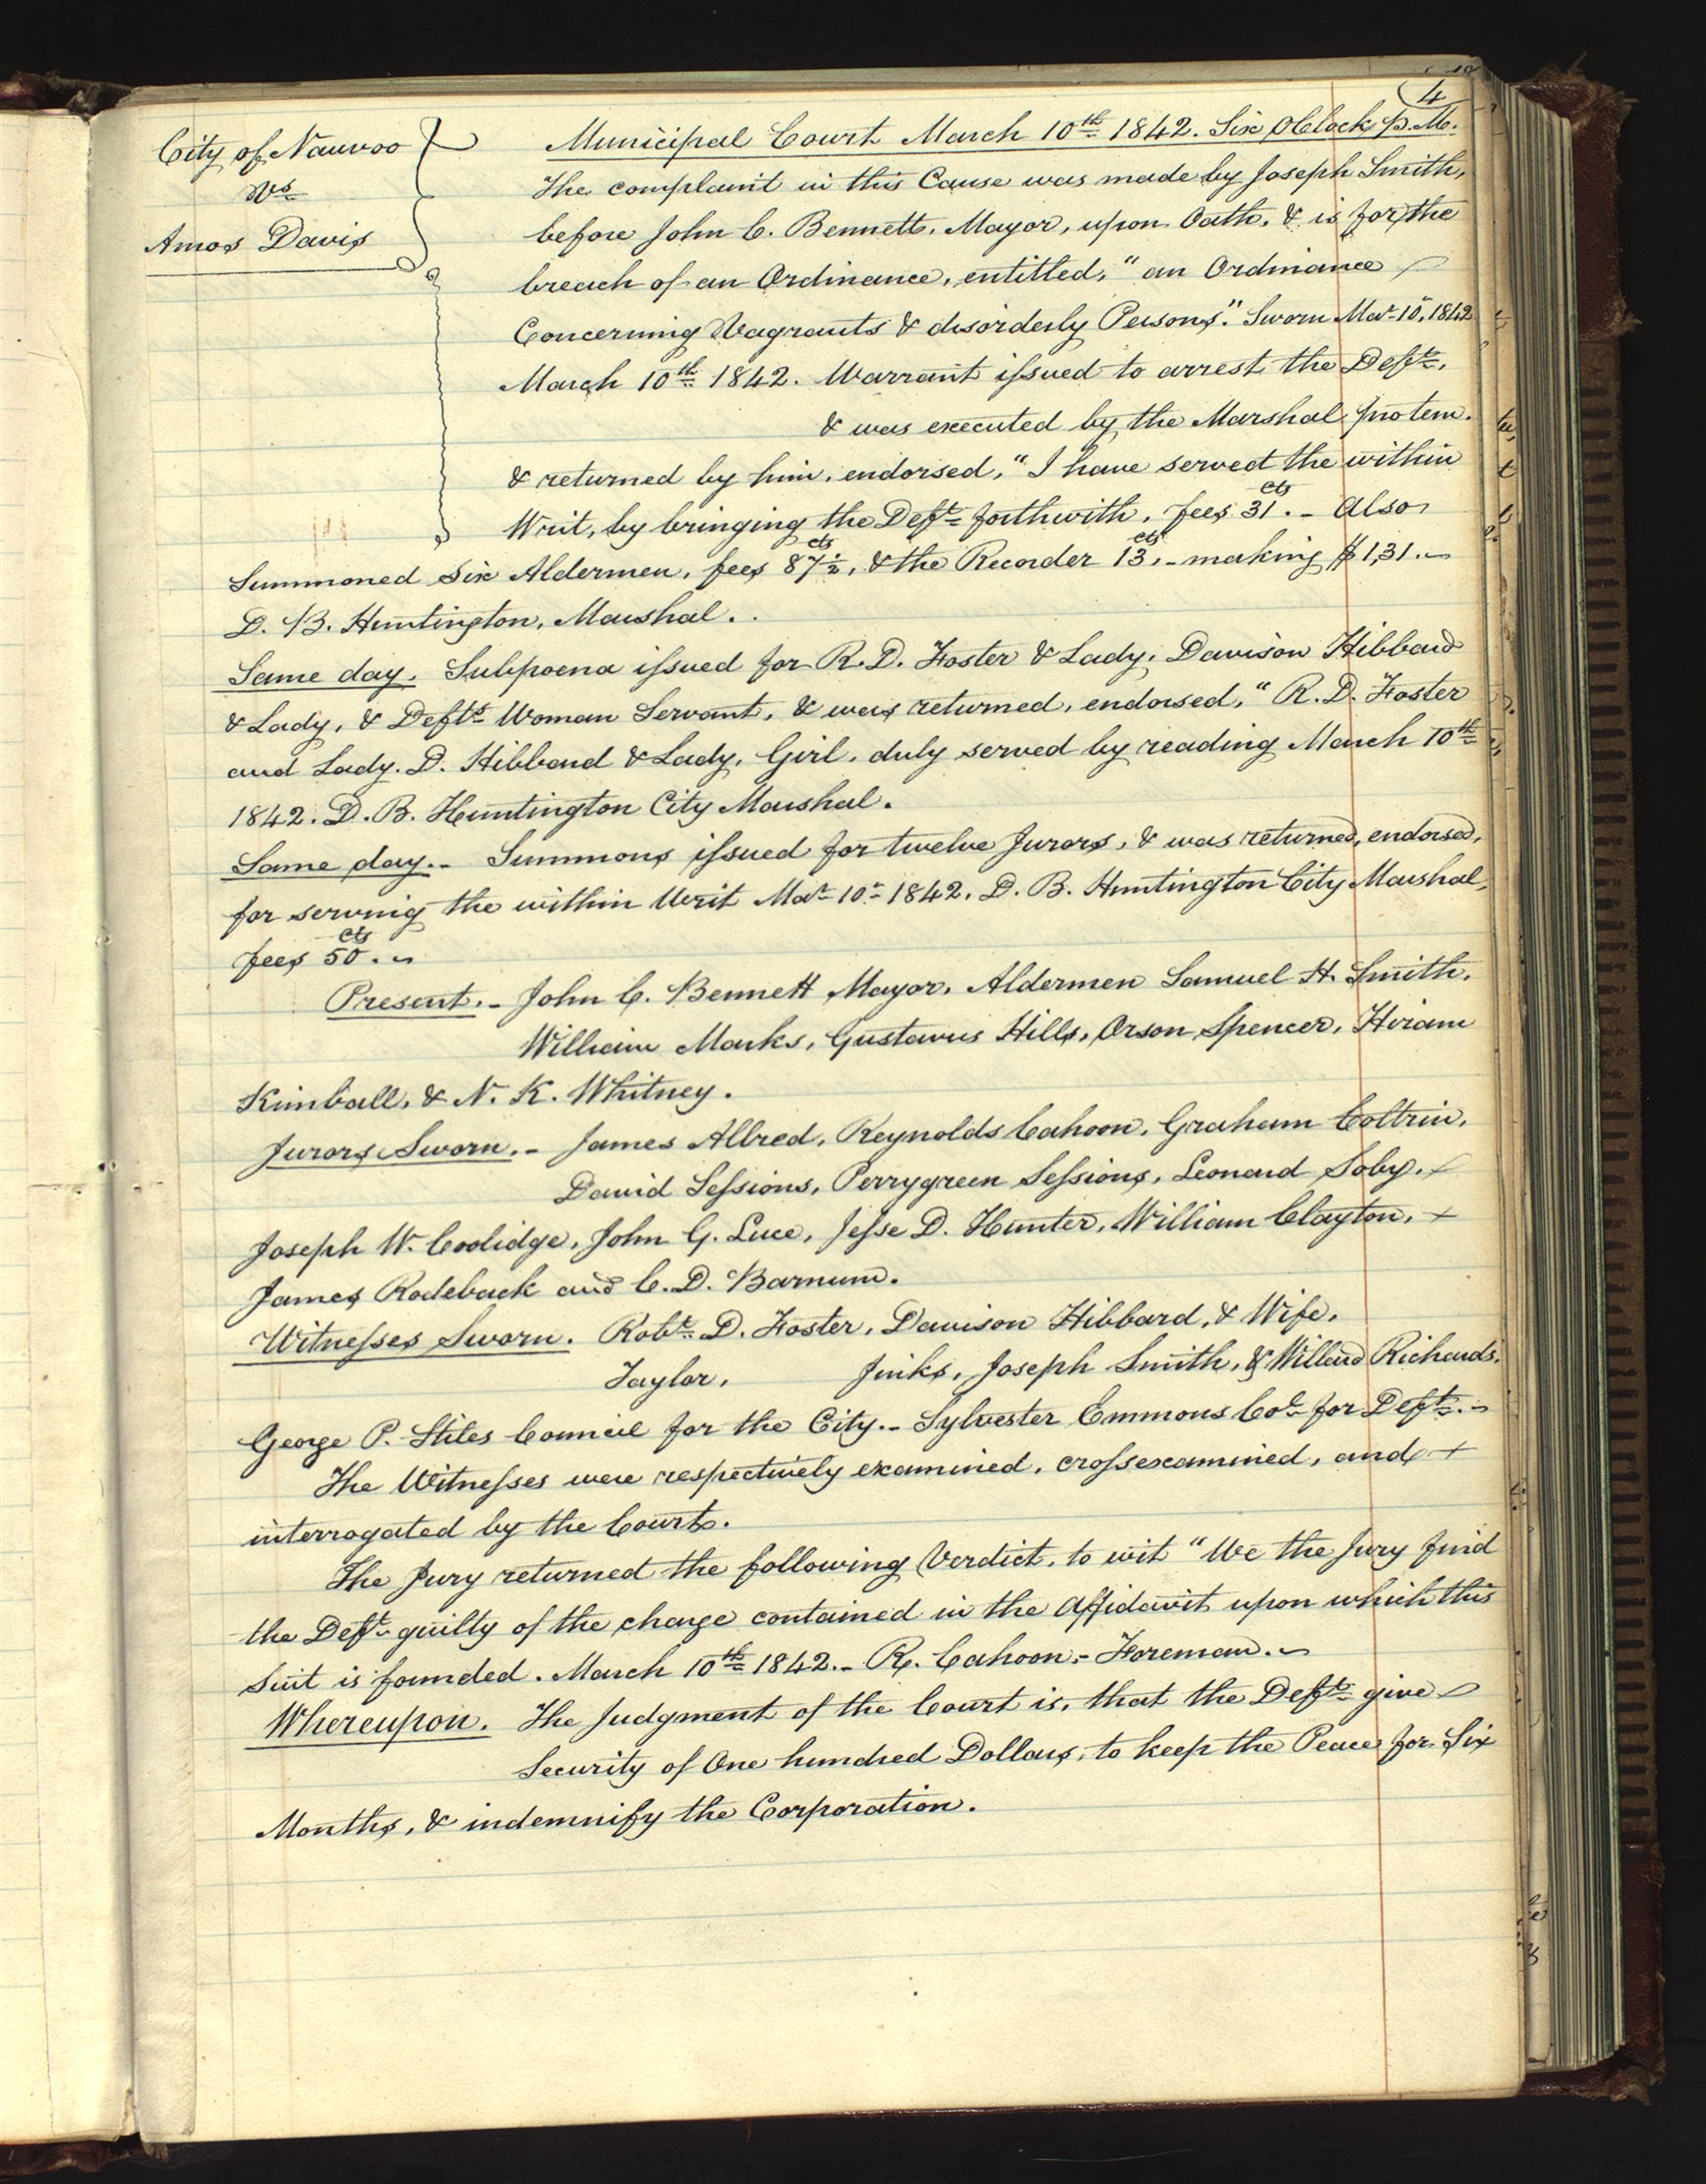 4
City of Nauvoo
vs
Amos Davis
Municipal Court March 10th 1842. Six o'Clock P.M.
The complaint in this Cause was made by Joseph Smith,
before John C. Bennett, Mayor, upon Oath, & is for the
breach of an Ordinance, entitled, "an Ordinance
Concerning Vagrants & disorderly Persons." Sworn Mar 10, 1842
March 10th 1842. Warrant issued to arrest the Deft.
& was executed by the Marshal protem.
& returned by him, endorsed, "I have served the within
Writ, by bringing the Deft forthwith, fees 31 cts. - Also
Summoned Six Aldermen, fees 87½ cts, & the Recorder 13 cts, - making $1,31.
D. B. Huntington, Marshal.
Same day. Subpoena issued for R. D. Foster & Lady, Davison Hibbard
& Lady, & Defts Woman Servant, & was returned, endorsed, "R. D. Foster
and Lady. D. Hibbard & Lady, Girl, duly served by reading March 10th
1842. D. B. Huntington City Marshal.
Same day. - Summons issued for twelve Jurors, & was returned, endorsed,
for serving the within Writ Mar 10 - 1842. D. B. Huntington City Marshal,
fees 50 cts.
Present. - John C. Bennett Mayor, Aldermen Samuel H. Smith,
William Marks, Gustavus Hills, Orson Spencer, Hiram
Kimball, & N. K. Whitney.
Jurors Sworn. - James Allred, Reynolds Cahoon, Graham Coltrin,
David Sessions, Perrygreen Sessions, Leonard Soby,
Joseph W. Coolidge, John G. Luce, Jesse D. Hunter, William Clayton,
James Rodeback and C. D. Barnum.
Witnesses Sworn. Robt D. Foster, Davison Hibbard, & Wife,
Taylor, Jinks, Joseph Smith, & Willard Richards.
George P. Stiles Council for the City. - Sylvester Emmons Col for Deft. -
The Witnesses were respectively examined, crossexamined, and
interrogated by the Court.
The Jury returned the following Verdict, to wit "We the Jury find
the Deft guilty of the charge contained in the Affidavit upon which this
Suit is founded. March 10th 1842. - R. Cahoon - Foreman.
Whereupon. The Judgment of the Court is, that the Deft give
Security of One hundred Dollars, to keep the Peace for Six
Months, & indemnify the Corporation.